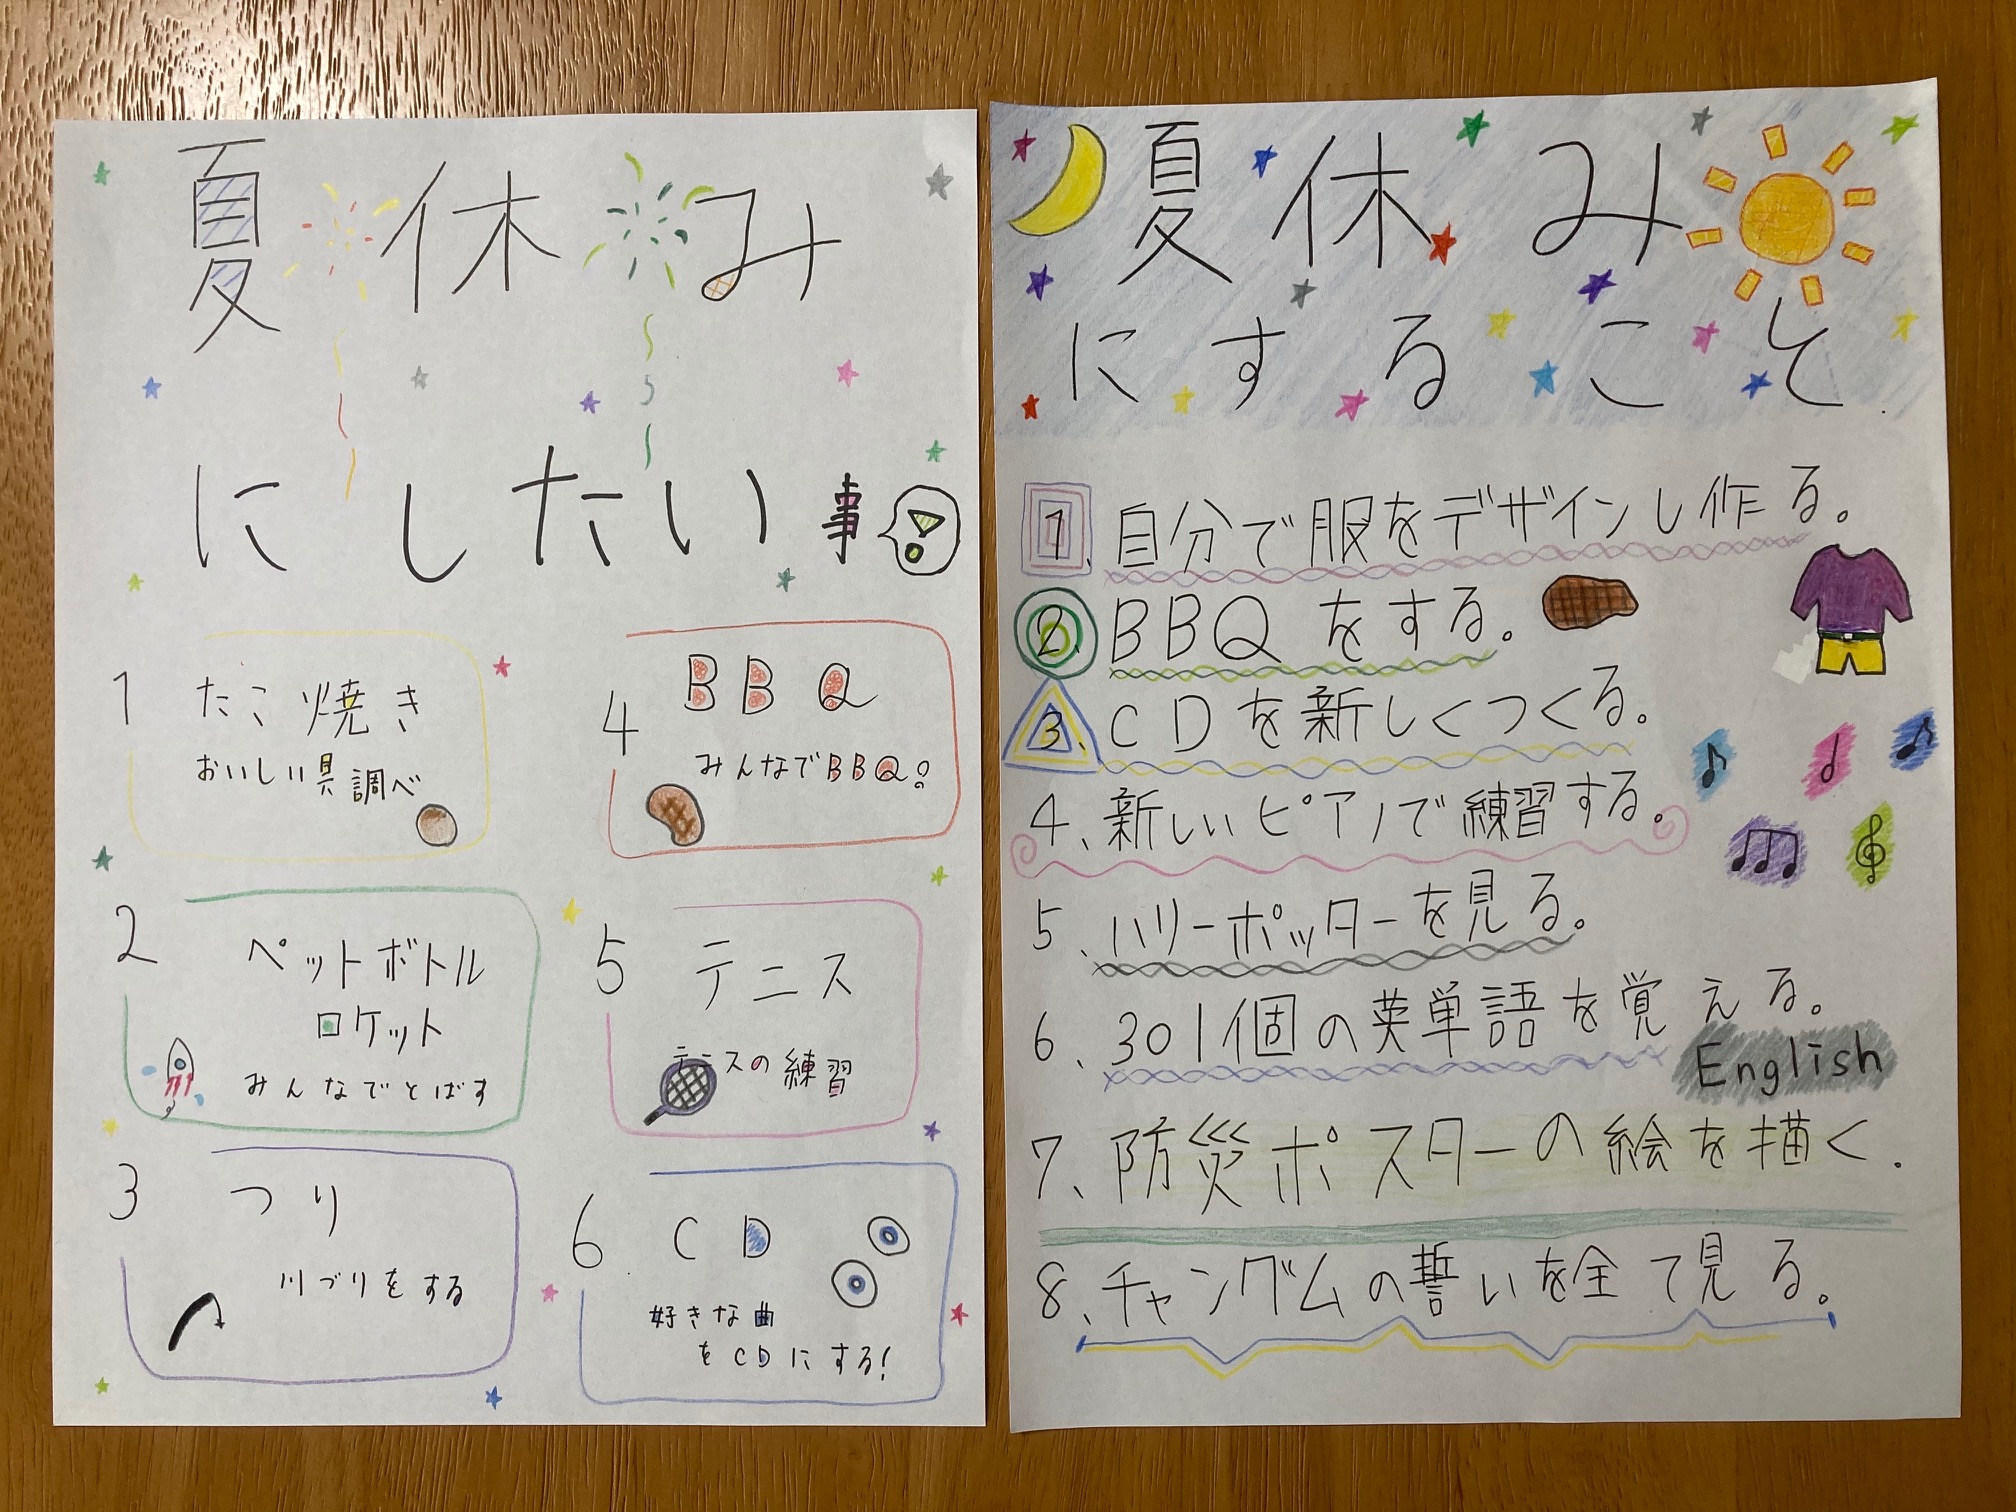 夏休み
にしたい事!
1
たこ焼き
おいしい具調べ
2
ペットボトル
ロケット
みんなでとばす
3
つり
川づりをする
4
BBQ
みんなでBBQ!
5
テニス
テニスの練習
6
CD
好きな曲
をCDにする!
夏休み
にすること
1、自分で服をデザインし作る。
2、BBQをする。
3、CDを新しくつくる。
4、新しいピアノで練習する。
5、ハリーポッターを見る。
6、301個の英単語を覚える。
English
7、防災ポスターの絵を描く.
8、チャングムの誓いを全て見る。